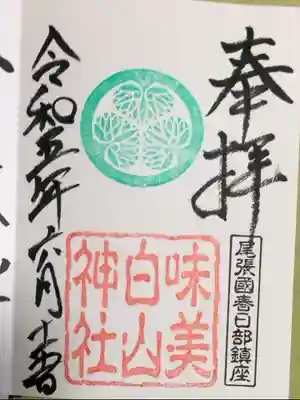 奉拝
尾張國春日部鎮座
味美
白山
神社
令和五年六月十一日